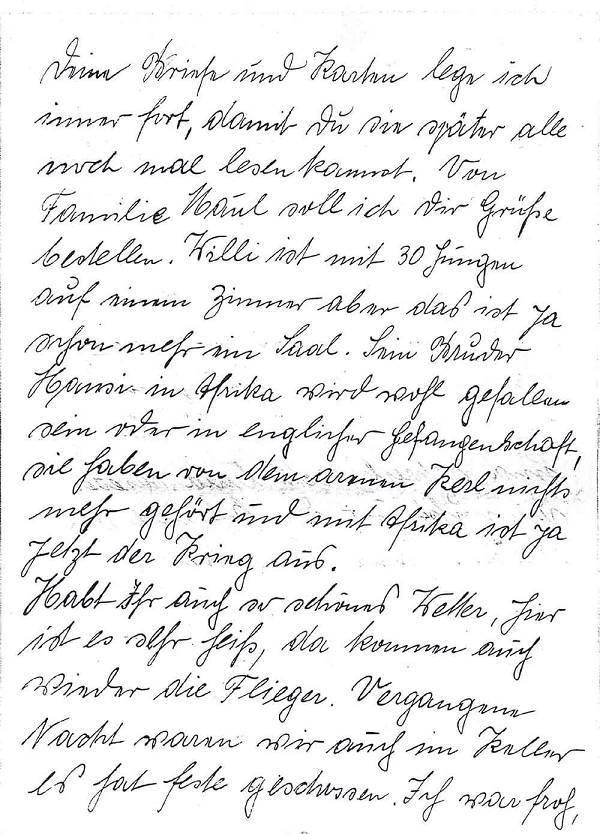 Deine Briefe und Karten lege ich
immer fort, damit Du sie später alle
noch mal lesen kannst. Von
Familie Haul soll ich Dir Grüße
bestellen. Willi ist mit 30 Jungen
auf einem Zimmer aber das ist ja
schon mehr ein Saal. Sein Bruder
Hansi in Afrika wird wohl gefallen
sein oder in englicher Gefangenschaft,
sie haben von dem armen Kerl nichts
mehr gehört und mit Afrika ist ja
jetzt der Krieg aus.
Habt Ihr auch so schönes Wetter, hier
ist es sehr heiß, da kommen auch
wieder die Flieger. Vergangene
Nacht waren wir auch im Keller
es hat feste geschossen. Ich war froh,